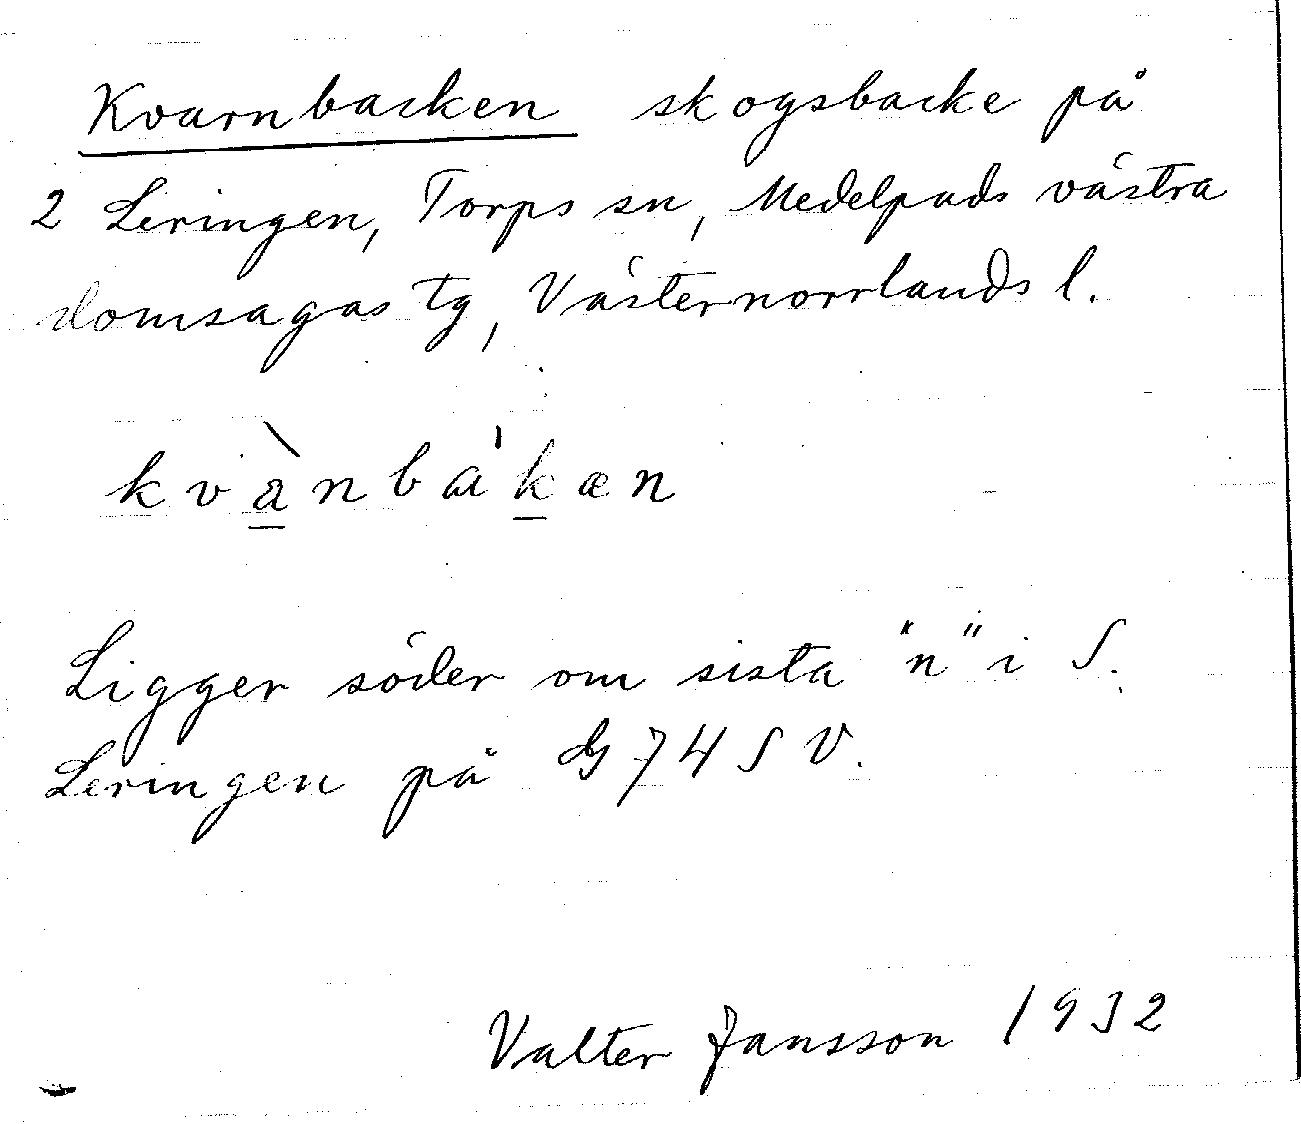 Kvarnbacken skogsbacke på
2 Leringen, Torps sn, Medelpads västra
domsagas tg, Västernorrlands l.
kvànba'kæn
Ligger söder om sista "n" i S.
Leringen på G 74 S V.
Valter Jansson 1932